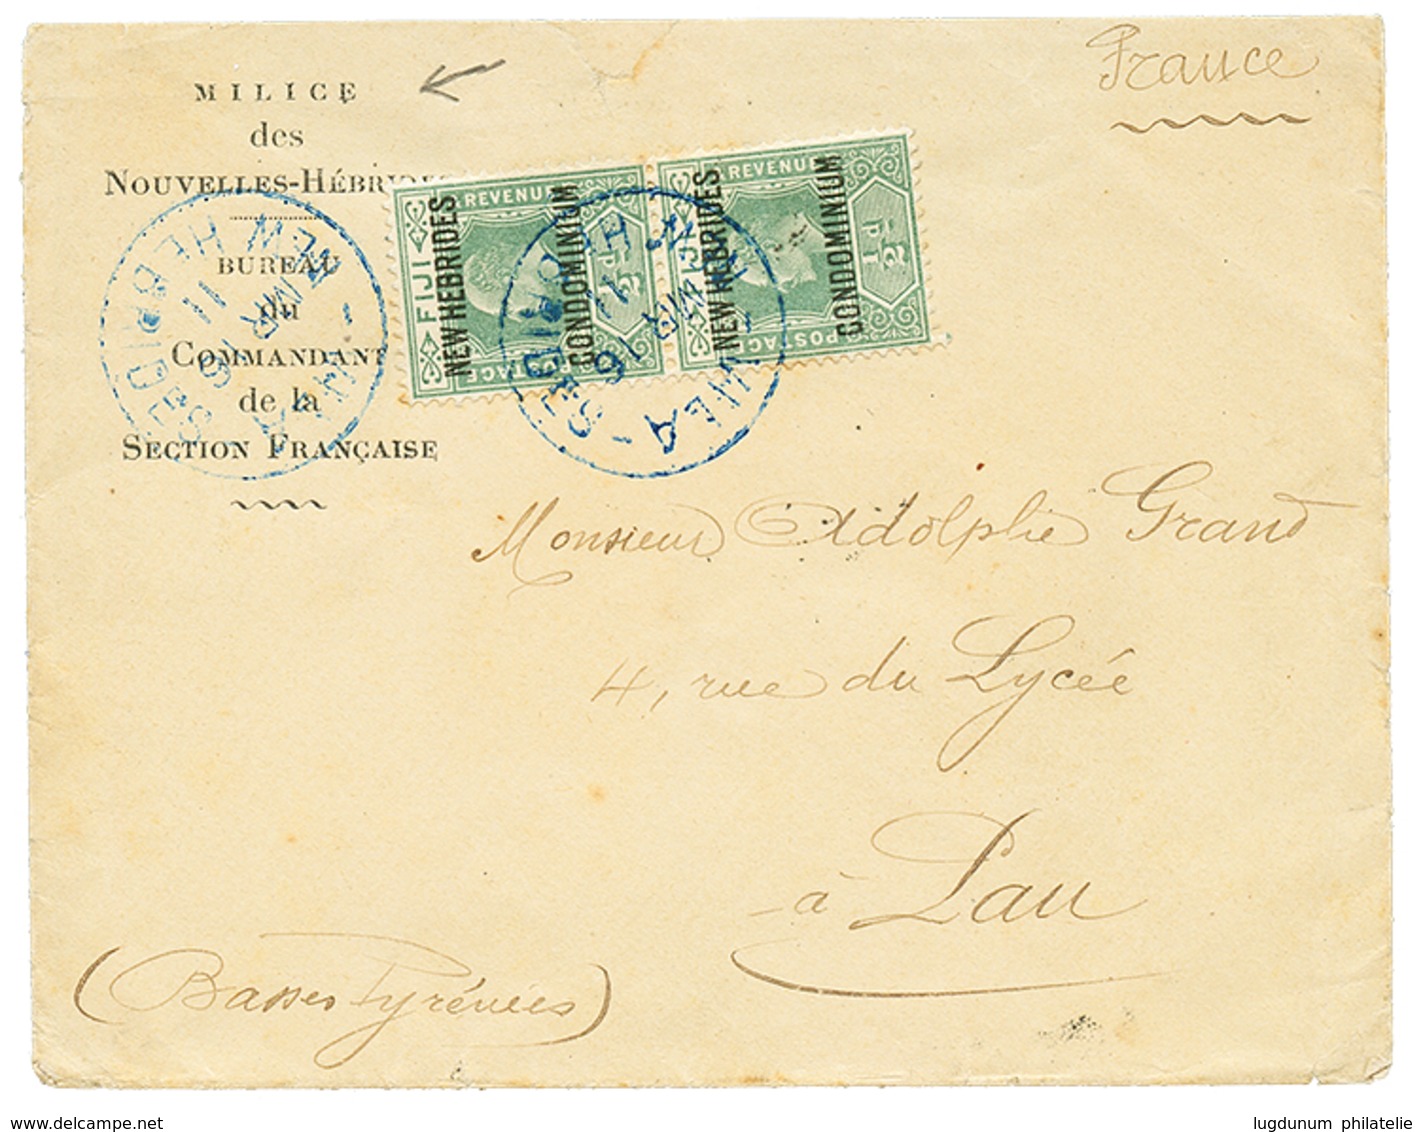 France
MILICE
des
NOUVELLES-HÉBRIDES
BUREAU
du
COMMANDANT
de la
SECTION FRANÇAISE
FIJI
NEW HEBRIDES
REVENUE
CONDOMINIUM
POSTAGE
½d
FIJI
NEW HEBRIDES
REVENUE
CONDOMINIUM
POSTAGE
½d
VILA
NEW HEBRIDES
16
MR
11
VILA
NEW HEBRIDES
16
MR
11
Monsieur Adolphe Grand
4, rue du Lycée
à Pau
(Basses Pyrénées)
www.delcampe.net
lugdunum philatelie